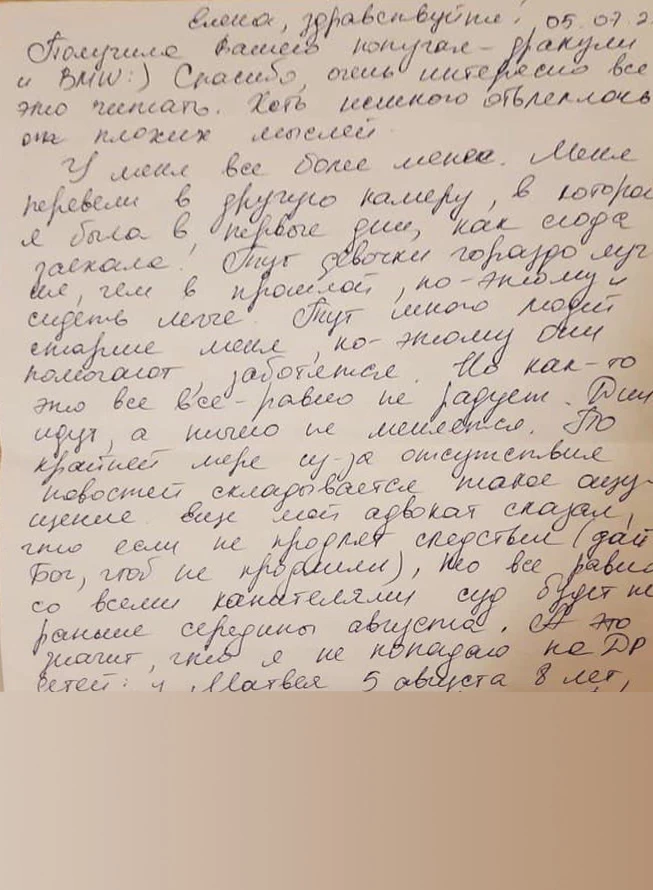 Елена, здравствуйте! 05.07.2
Получила Вашего попугая-дракули
и BMW:) Спасибо, очень интересно все
это читать. Хоть немного отвлеклась
от плохих мыслей.
У меня все более менее. Меня
перевели в другую камеру, в которой
я была в первые дни, как сюда
заехала! Тут девочки гораздо луч-
ше, чем в прошлой, по-этому и
сидеть легче. Тут много людей
старше меня, по-этому они
помогают, заботятся. Но как-то
это все все-равно не радует. Дни
идут, а ничего не меняется. По
крайней мере из-за отсутствия
новостей складывается такое ощу-
щение. Еще мой адвокат сказал,
что если не продлят следствие (дай
Бог, чтоб не продлили), то все равно
со всеми канителями суд будет не
раньше середины августа. А это
значит, что я не попадаю на ДР
детей: у Матвея 5 августа 8 лет,